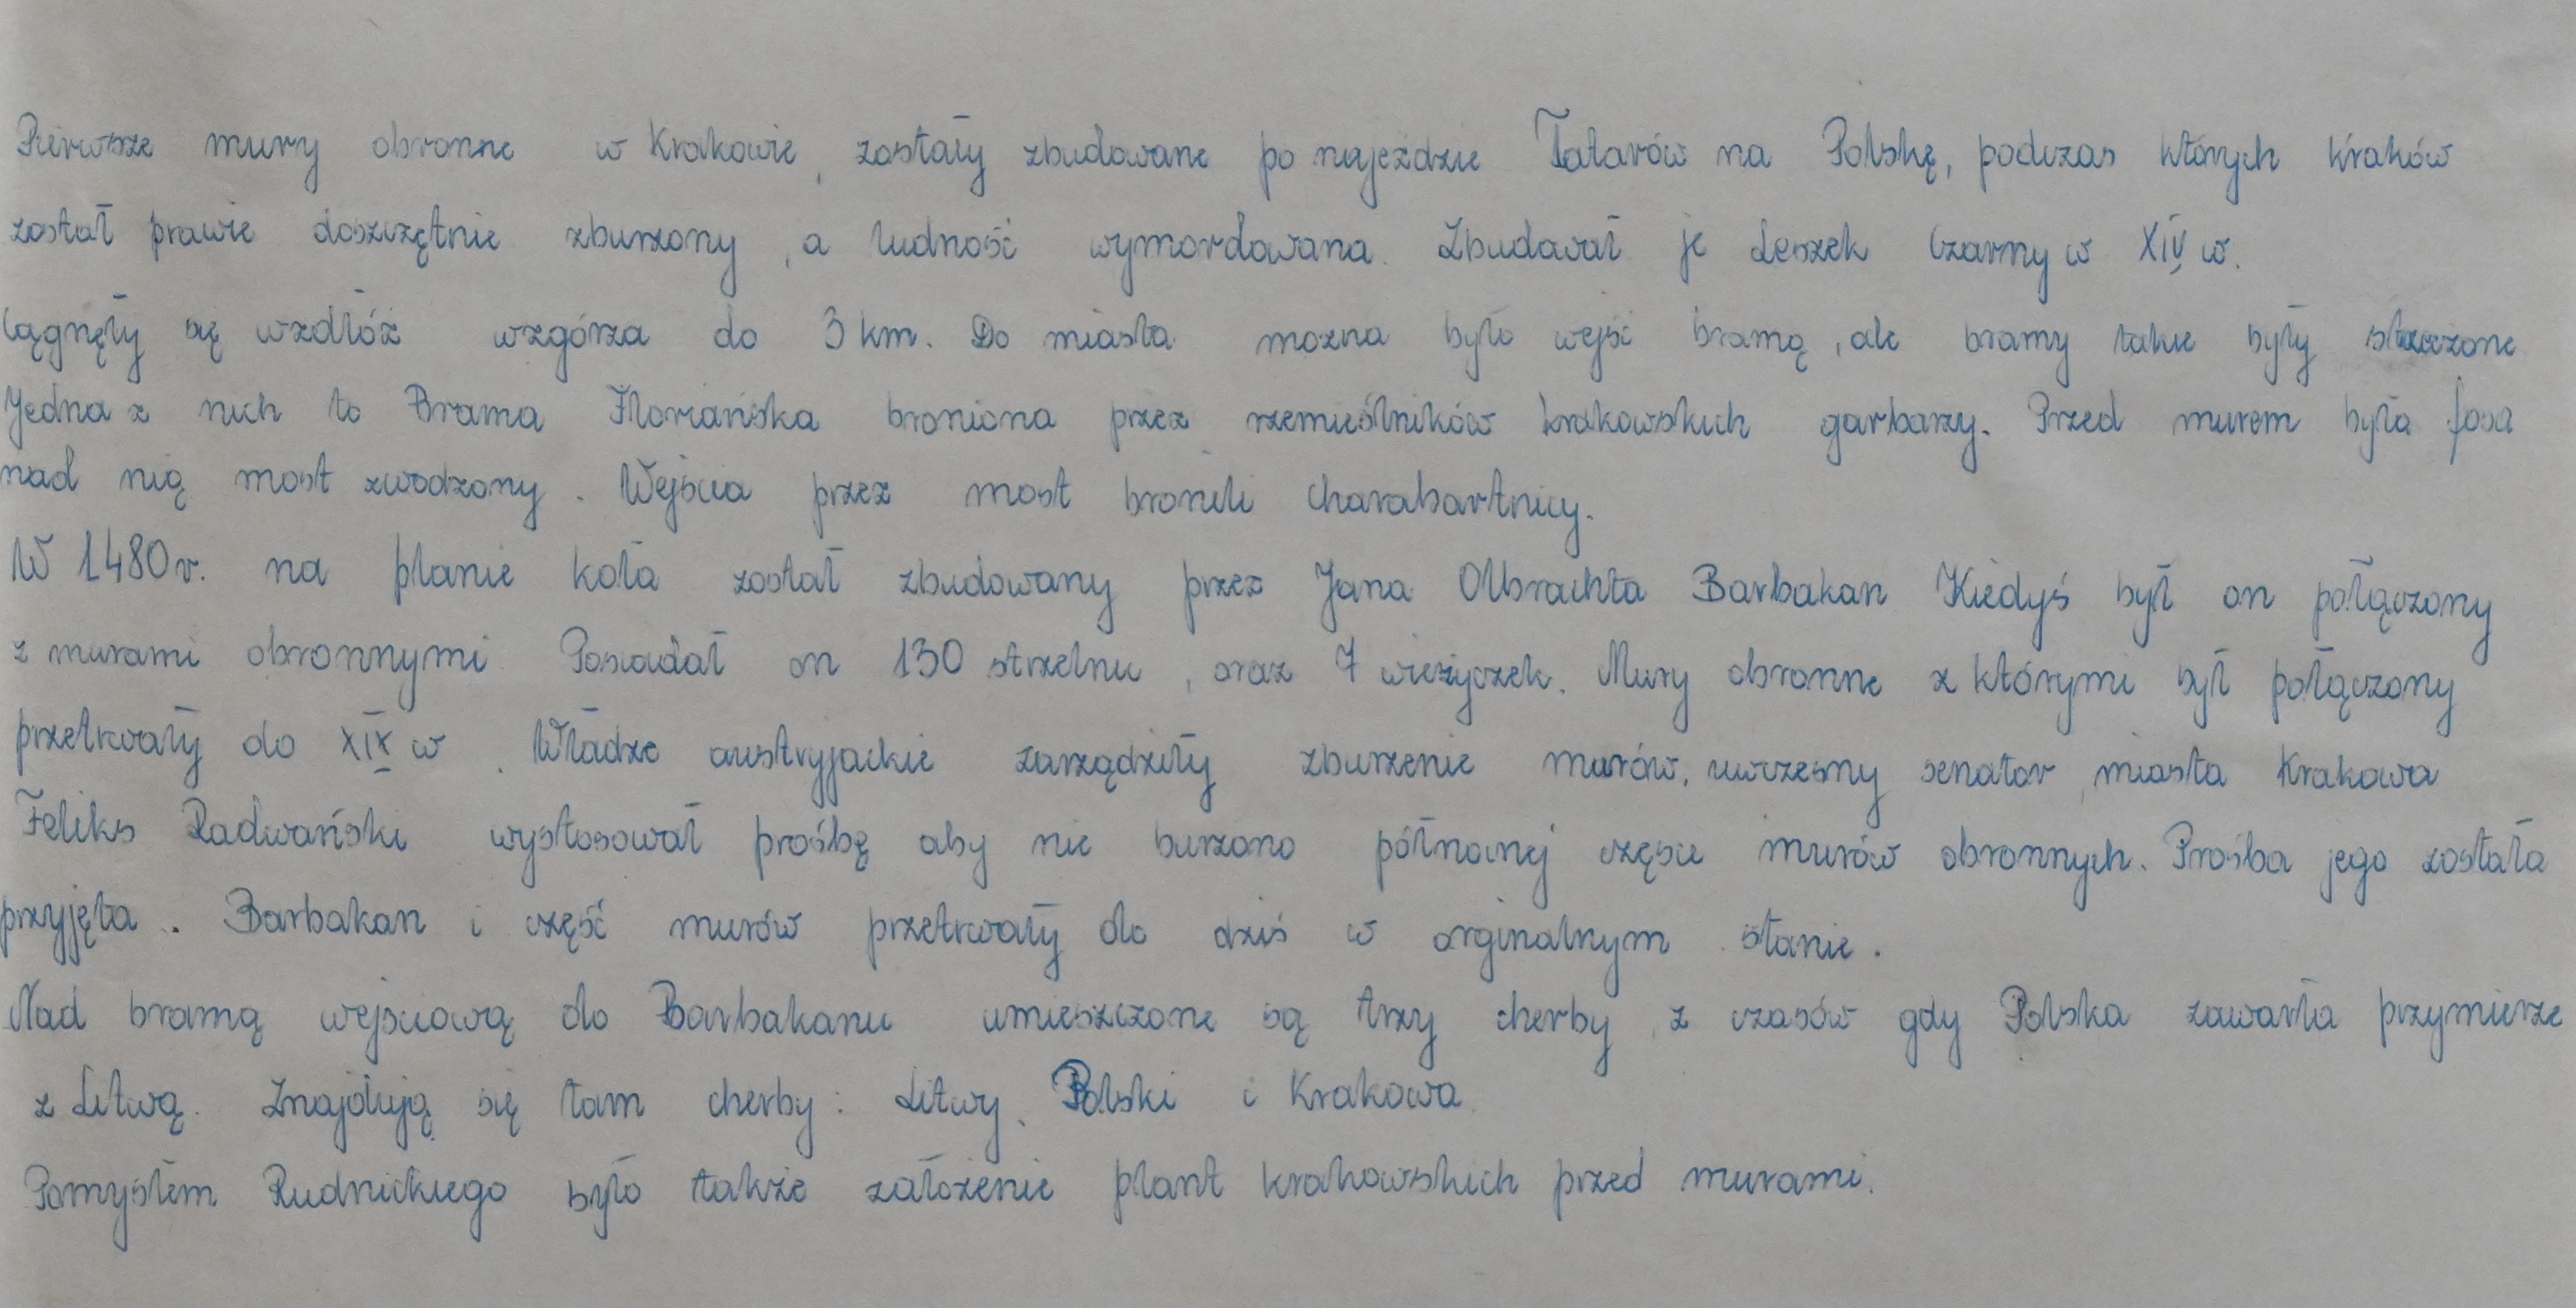 Pierwsze mury obronne w Krakowie, zostały zbudowane po najeździe Tatarów na Polskę, podczas których Kraków
został prawie doszczętnie zburzony, a ludność wymordowana. Zbudawał je Leszek Czarny w XIV w.
Ciągnęły się wzdłóż wzgórza do 3 km. Do miasta mozna było wejść bramą, ale bramy takie były
Jedna z nich to Brama Floriańska broniona przez rzemieślników krakowskich garbarzy. Przed murem była fosa
nad nią most zwodzony. Wejścia przez most bronili charabartnicy.
W 1480 r. na planie koła został zbudowany przez Jana Olbrachta Barbakan Kiedyś był on połączony
z murami obronnymi. Posiadał on 130 strzelnic, oraz 7 wieżyczek. Mury obronne z którymi był połączony
przetrwały do XIX w. Władze austryjackie zarządziły zburzenie murów, uwczesny senator miasta Krakowa
Feliks Radwański wystosował prośbę aby nie burzono północnej części murów obronnych. Prośba jego została
przyjęta. Barbakan i część murów przetrwały do dziś w orginalnym stanie.
Nad bramą wejściową do Barbakanu umieszczone są trzy cherby z czasów gdy Polska zawarła przymierze
z Litwą. Znajdują się tam cherby: Litwy, Polski i Krakowa.
Pomysłem Rudnickiego było także założenie plant krakowskich przed murami.